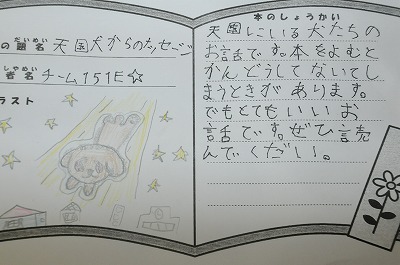 の題名 だいめい 天国犬からのメッセージ
者名 しゃめい チーム151E☆
ラスト
本のしょうかい
天国にいる犬たちの
お話です。本をよむと
かんどうしてないてし
まうときがあります。
でもとてもいいお
話です。ぜひ読
んでください。